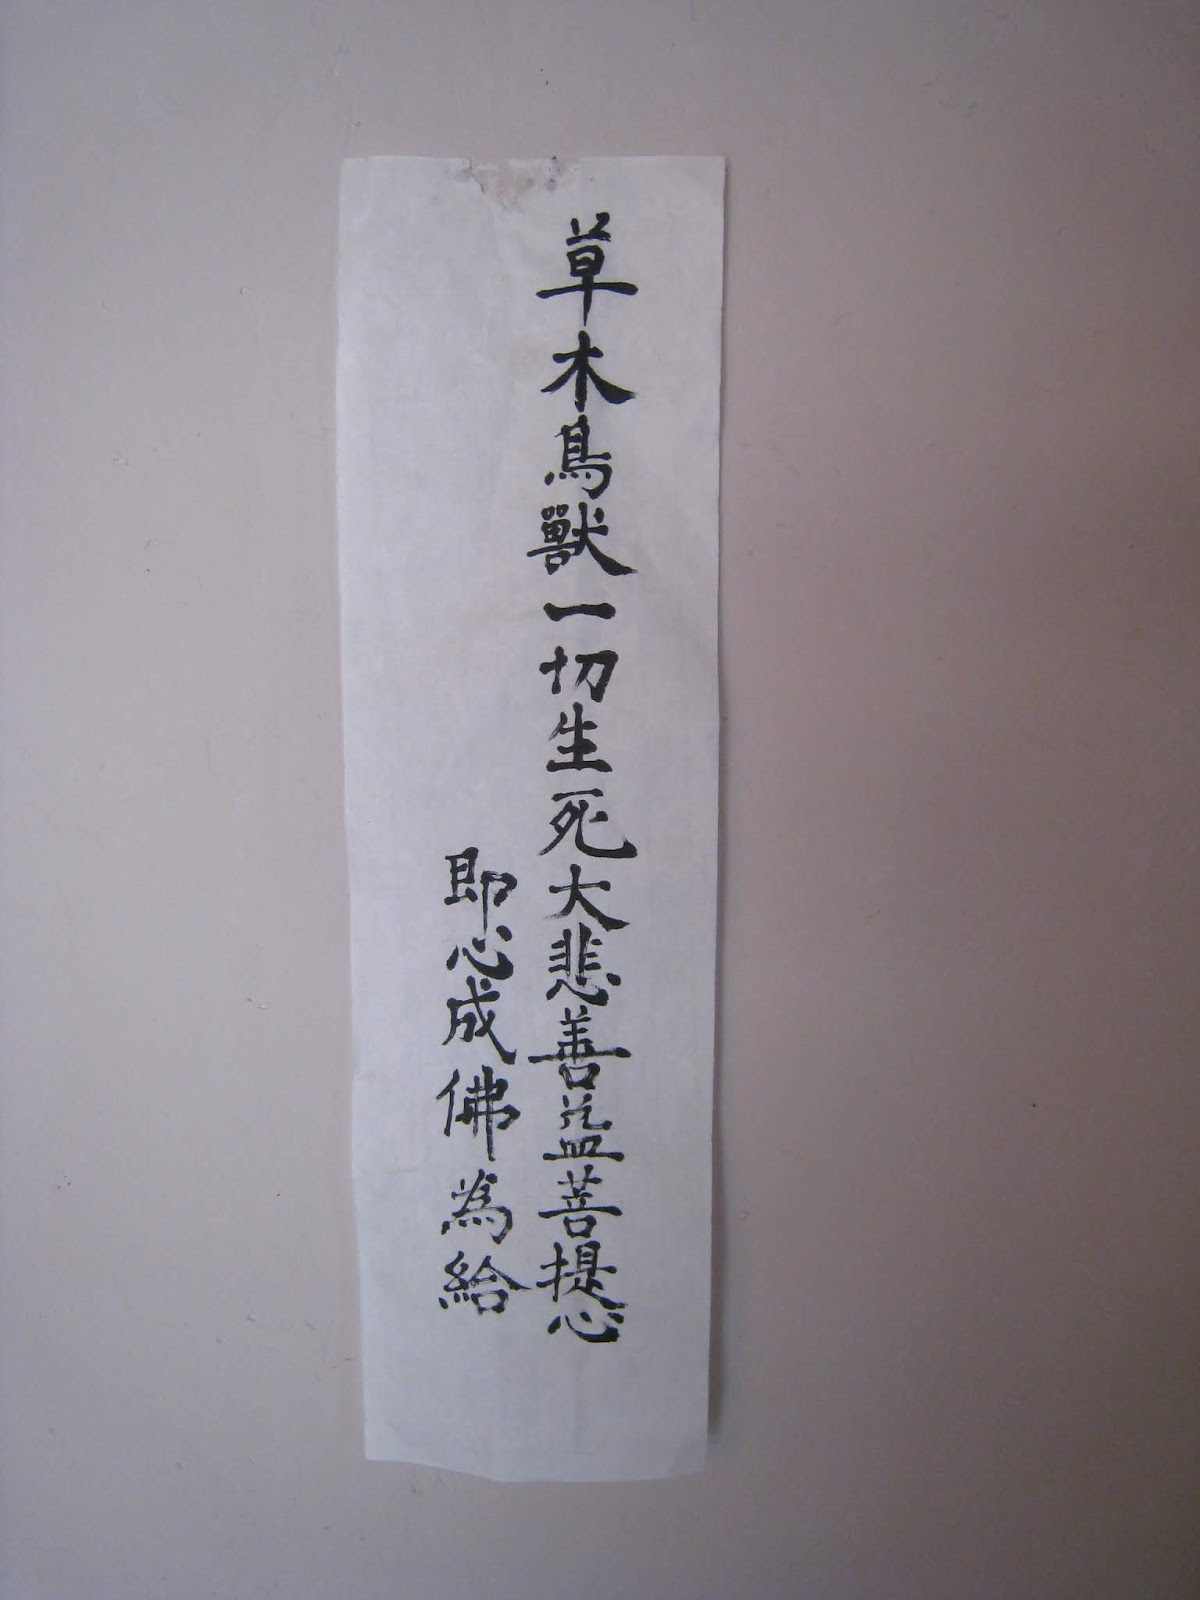 草木鳥獸一切生死大悲善益菩提心
即心成佛為給